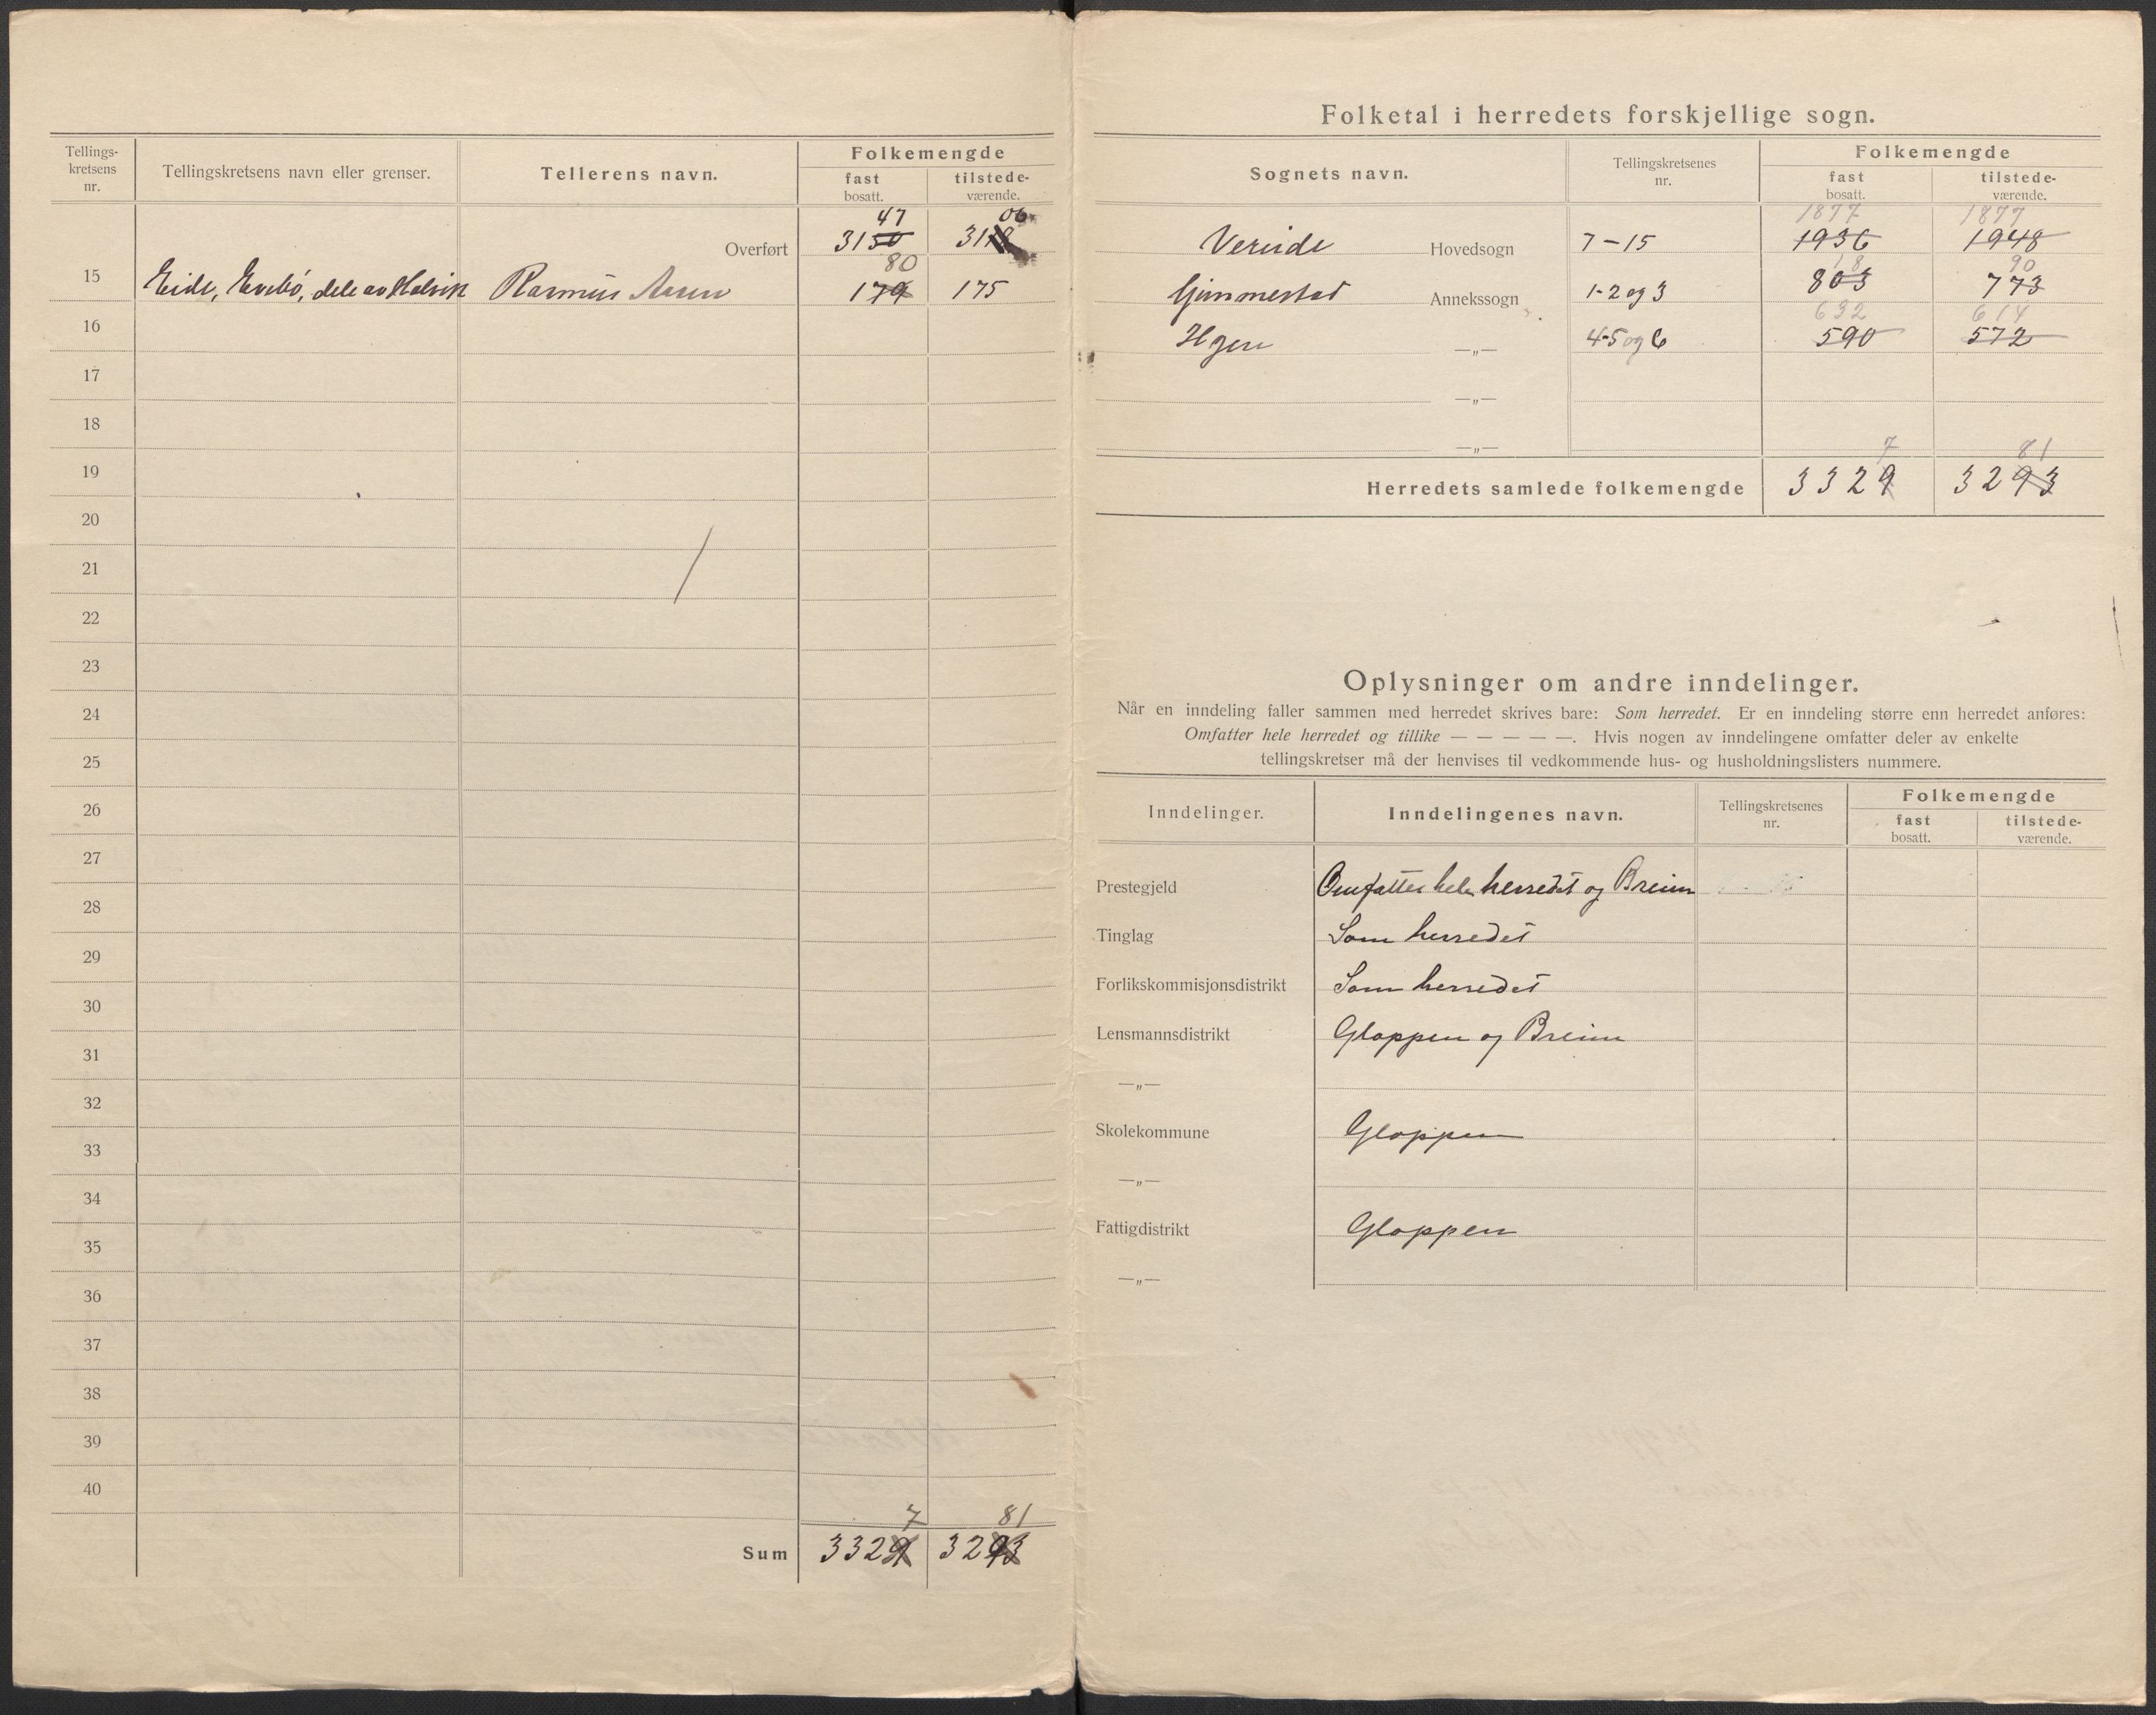 Tellings-
kretsens
nr.
Tellingskretsens navn eller grenser.
Tellerens navn.
Folkemengde
fast
bosatt.
tilstede-
værende.
47 06
Overført 3150 3118
80
15 Eide, Evebö, dele av Holvik Rasmus Aasen 179 175
16
17
18
19
20
21
22
23
24
25
26
27
28
29
30
31
32
33
34
35
36
37
38
39
40
7 81
Sum 3329 3293
Folketal i herredets forskjellige sogn.
Sognets navn.
Tellingskretsenes
nr.
Folkemengde
fast
bosatt.
tilstede-
værende.
1877 1877
Vereide Hovedsogn 7-15 1936 1948
18 90
Gimmestad Annekssogn 1-2 og 3 803 773
632 614
Hyen —„— 4-5 og 6 590 572
—„—
—„—
7 81
Herredets samlede folkemengde 3329 3293
Oplysninger om andre inndelinger.
Når en inndeling faller sammen med herredet skrives bare: Som herredet. Er en inndeling større enn herredet anføres:
Omfatter hele herredet og tillike — — — — —. Hvis nogen av inndelingene omfatter deler av enkelte
tellingskretser må der henvises til vedkommende hus- og husholdningslisters nummere.
Inndelinger.
Inndelingenes navn.
Tellingskretsenes
nr.
Folkemengde
fast
bosatt.
tilstede-
værende.
Prestegjeld Omfatter hele herredet og Breim
Tinglag Som herredet
Forlikskommisjonsdistrikt Som herredet
Lensmannsdistrikt Gloppen og Breim
—„—
Skolekommune Gloppen
—„—
Fattigdistrikt Gloppen
—„—